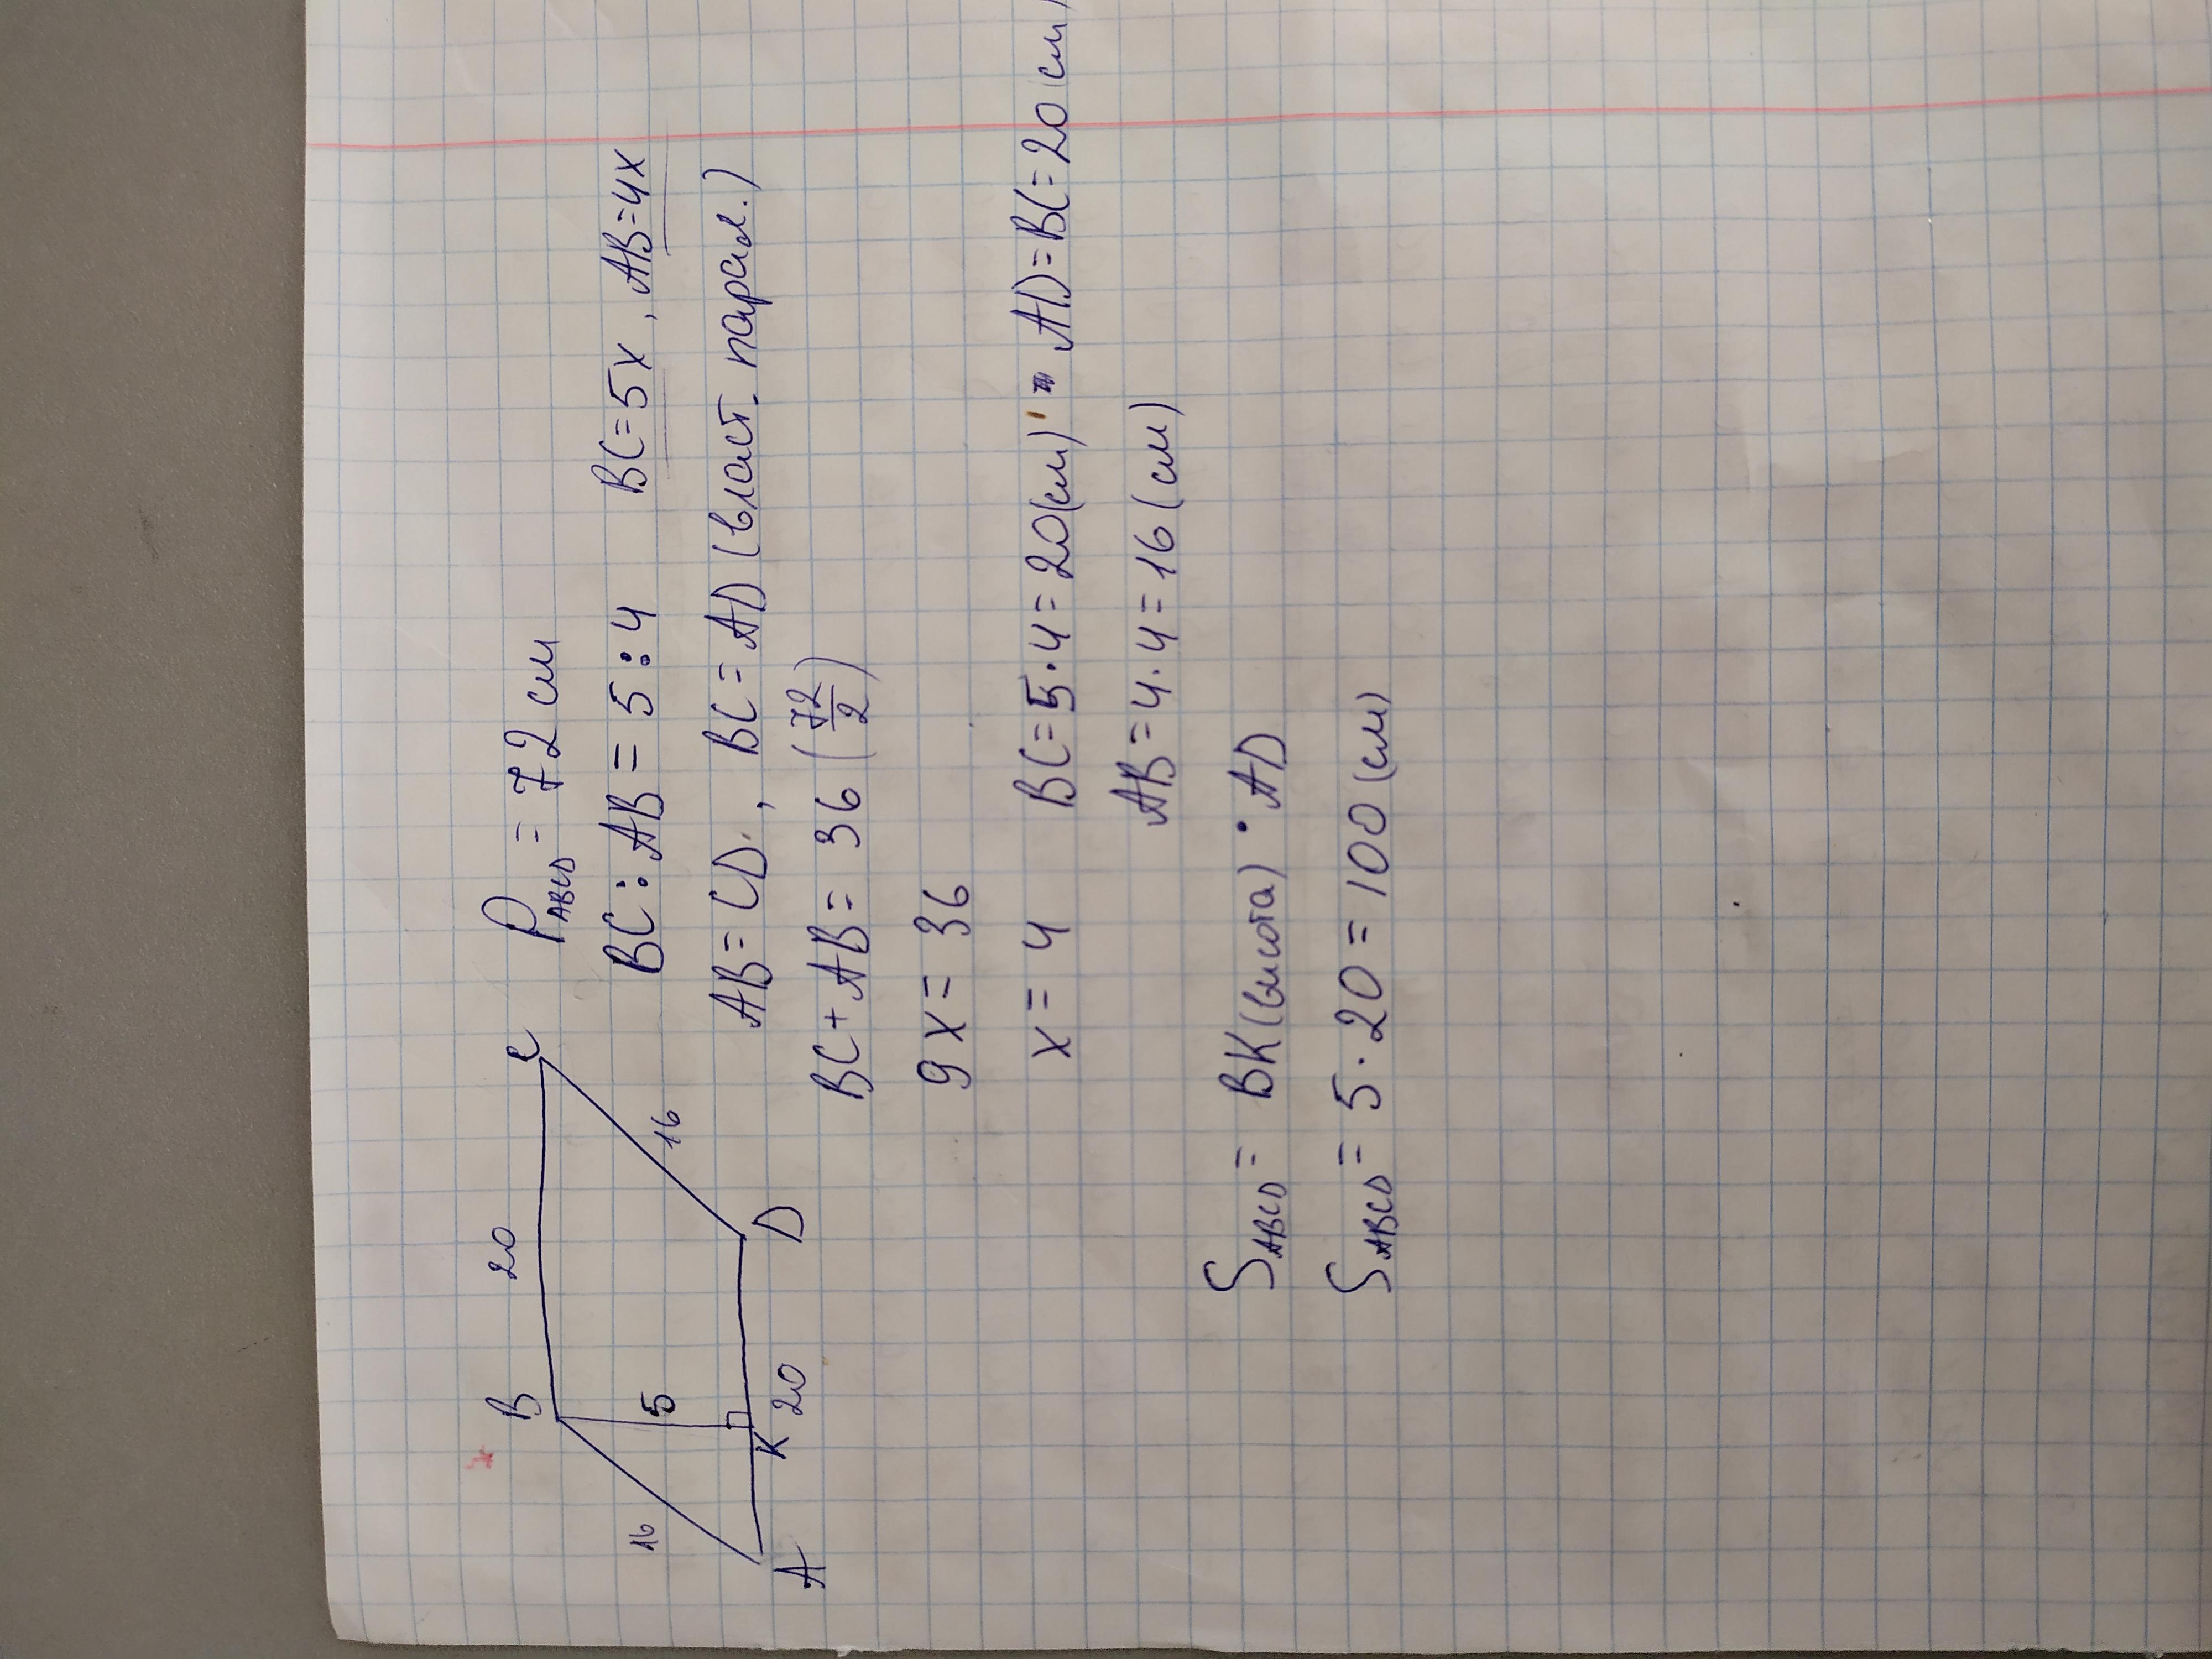 B 20 C
16 5 16
A K 20 D
P ABCD = 72 см
BC : AB = 5 : 4 BC = 5x , AB = 4x
AB = CD , BC = AD (власт. парал.)
BC + AB = 36 (72/2)
9x = 36
x = 4 BC = 5 · 4 = 20 (см) AD = BC = 20 (см)
AB = 4 · 4 = 16 (см)
S ABCD = BK (висота) · AD
S ABCD = 5 · 20 = 100 (см)